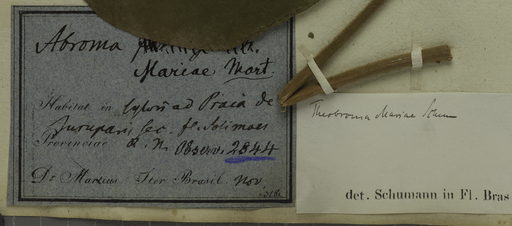 Abroma
Mariae Mart.
Habitat in sylvis ad Praia de
Juruparis sec. fl. Solimoes
Provinciae R. N. Observ. 2844
Dr Martius Iter Brasil Nov.
Theobroma Mariae Schum
det. Schumann in Fl. Bras